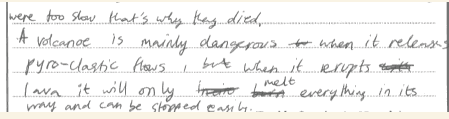 were too slow that's why they died.
A volcanoe is mainly dangerous when it releases
pyro-clastic flows, when it erupts
lava it will only melt everything in its
way and can be stopped easily.